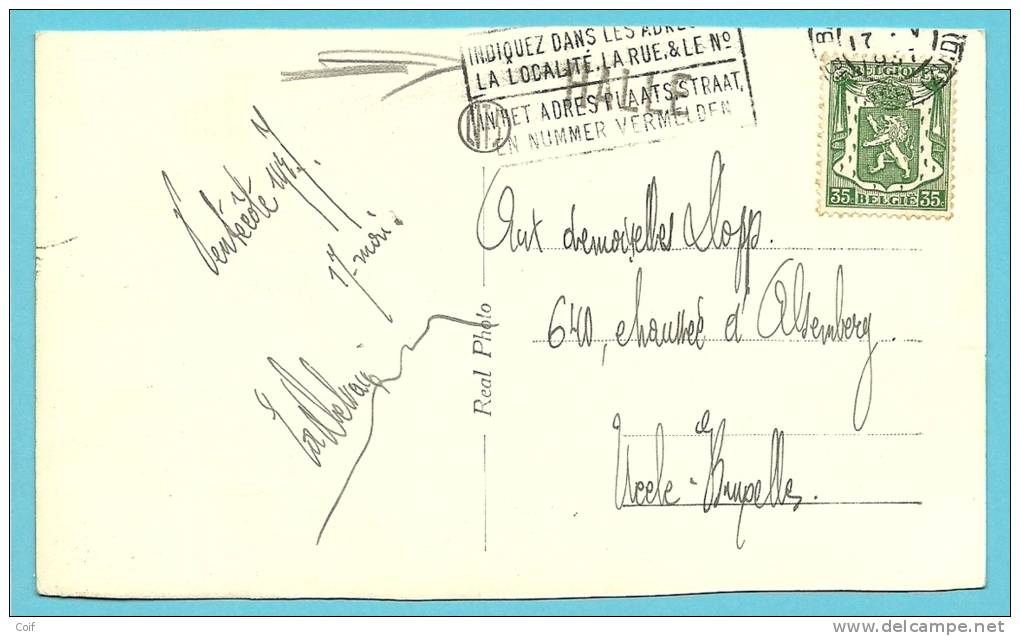 INDIQUEZ DANS LES ADRES
LA LOCALITÉ, LA RUE, & LE Nº
IN HET ADRES PLAATS, STRAAT,
EN NUMMER VERMELDEN
HALLE
17
BELGIQUE
35c BELGIË 35c
Pentecôte
17 mai
Real Photo
Aux demoiselles Slopp.
640, chaussée d'Alsemberg.
Uccle-Bruxelles.
Coif
delcampe.net